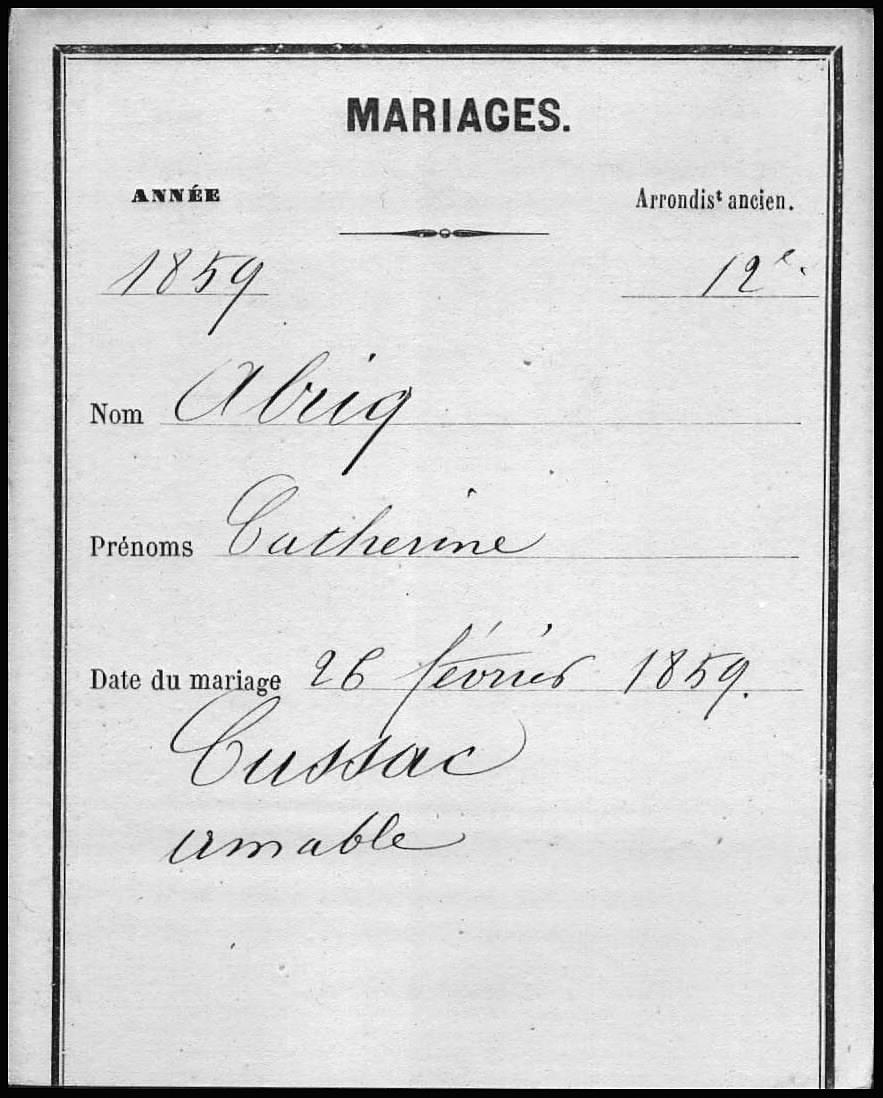 MARIAGES.
ANNÉE
Arrondist ancien.
1859
12e.
Nom Abriq
Prénoms Catherine
Date du mariage 26 février 1859.
Cussac
amable